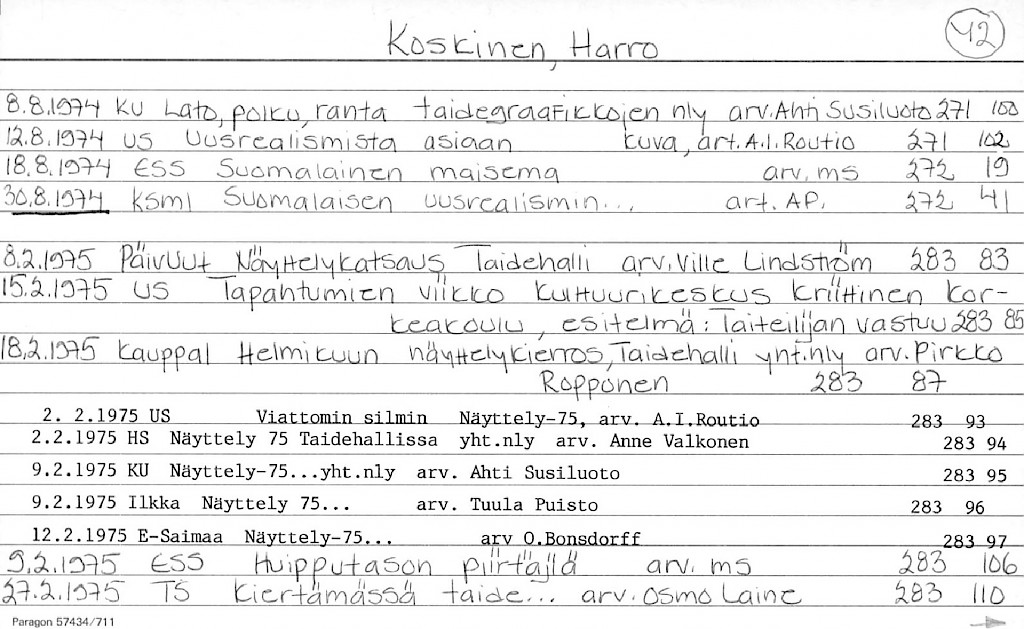 Koskinen, Harro
42
8.8.1974 KU Lato, polku, ranta taidegraafikkojen nly arv. Ahti Susiluoto 271 100
12.8.1974 US Uusrealismista asiaan kuva, art. A.I. Routio 271 102
18.8.1974 ESS Suomalainen maisema arv. ms 272 19
30.8.1974 Ksml Suomalaisen uusrealismin... art. AP. 272 41
8.2.1975 PäivUut Näyttelykatsaus Taidehalli arv. Ville Lindström 283 83
15.2.1975 US Tapahtumien viikko Kulttuurikeskus Kriittinen kor-
keakoulu, esitelmä: Taiteilijan vastuu 283 85
18.2.1975 Kauppal Helmikuun näyttelykierros, Taidehalli ynt.nly arv. Pirkko
Ropponen 283 87
2. 2.1975 US Viattomin silmin Näyttely-75, arv. A.I.Routio 283 93
2.2.1975 HS Näyttely 75 Taidehallissa yht.nly arv. Anne Valkonen 283 94
9.2.1975 KU Näyttely-75...yht.nly arv. Ahti Susiluoto 283 95
9.2.1975 Ilkka Näyttely 75... arv. Tuula Puisto 283 96
12.2.1975 E-Saimaa Näyttely-75... arv O.Bonsdorff 283 97
9.2.1975 ESS Huipputason piirtäjiä arv. ms 283 106
27.2.1975 TS Kiertämässä taide... arv. Osmo Laine 283 110
Paragon 57434/711